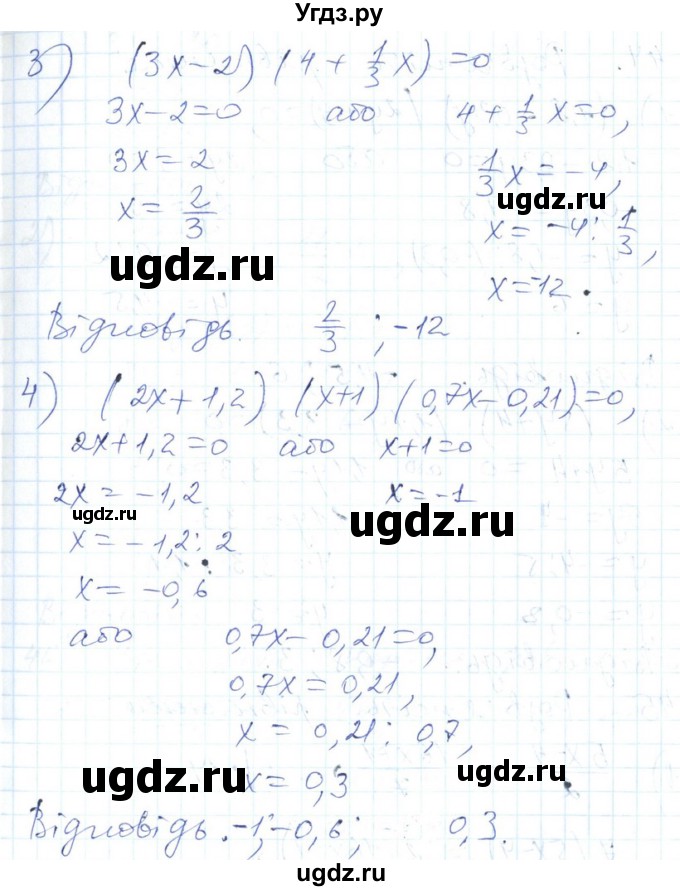 Угдз.ру
3) (3x-2) (4 + 1/3 x) = 0
3x-2=0 або 4 + 1/3 x=0,
3x = 2 1/3 x = -4,
x = 2/3 x = -4 : 1/3,
ugdz.ru
ugdz.ru
x = -12.
Відповідь. 2/3 ; -12
4) (2x+1,2) (x+1) (0,7x-0,21)=0,
2x+1,2=0 або x+1=0
2x = -1,2 x = -1
ugdz.ru
ugdz.ru
x = -1,2 : 2
x = -0,6
або 0,7x - 0,21=0,
0,7x = 0,21,
x = 0,21 : 0,7,
x = 0,3
ugdz.ru
ugdz.ru
Відповідь. -1; -0,6; 0,3.
ugdz.ru